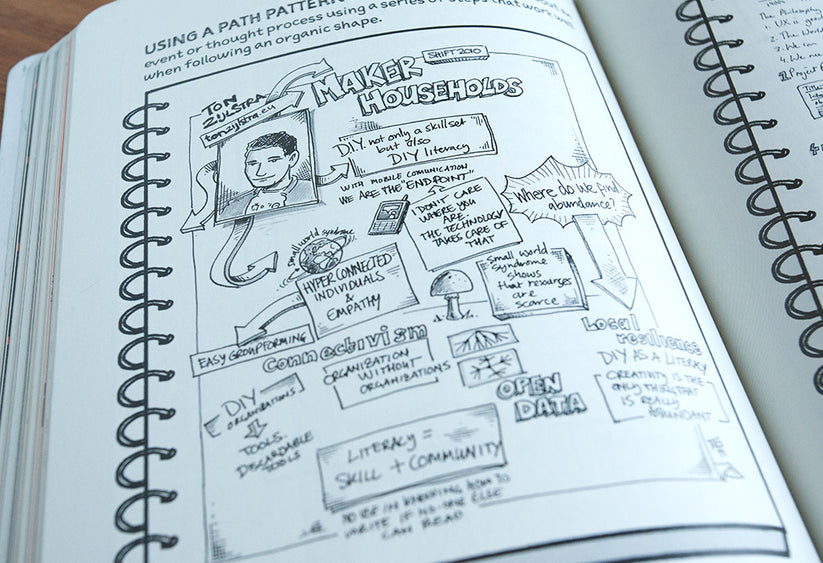 USING A PATH PATTERN
event or thought process using a series of steps that work well
when following an organic shape.
SHIFT 2010
MAKER
HOUSEHOLDS
TON
ZIJLSTRA
tonzijlstra.eu
DIY not only a skillset
but also
DIY literacy
WITH MOBILE COMUNICATION
WE ARE THE "ENDPOINT"
I DON'T CARE
WHERE YOU
ARE.
THE TECHNOLOGY
TAKES CARE OF
THAT
Where do we find
abundance?
small world syndrome
HYPER CONNECTED
INDIVIDUALS
&
EMPATHY
small world
syndrome
shows
that resourses
are
scarce
EASY GROUPFORMING
Connectivism
ORGANIZATION
WITHOUT
ORGANIZATIONS
Local
resilience
DIY AS A LITERACY
CREATIVITY IS THE
ONLY THING THAT
IS REALLY
ABUNDANT
DIY
ORGANIZATIONS
TOOLS.
DISCARDABLE
TOOLS
OPEN
DATA
LITERACY =
SKILL + COMMUNITY
NO USE IN KNOWING HOW TO
WRITE IF NO-ONE ELSE
CAN READ
The Philosophy
1. UX is
2. The World
3. We can
4. We